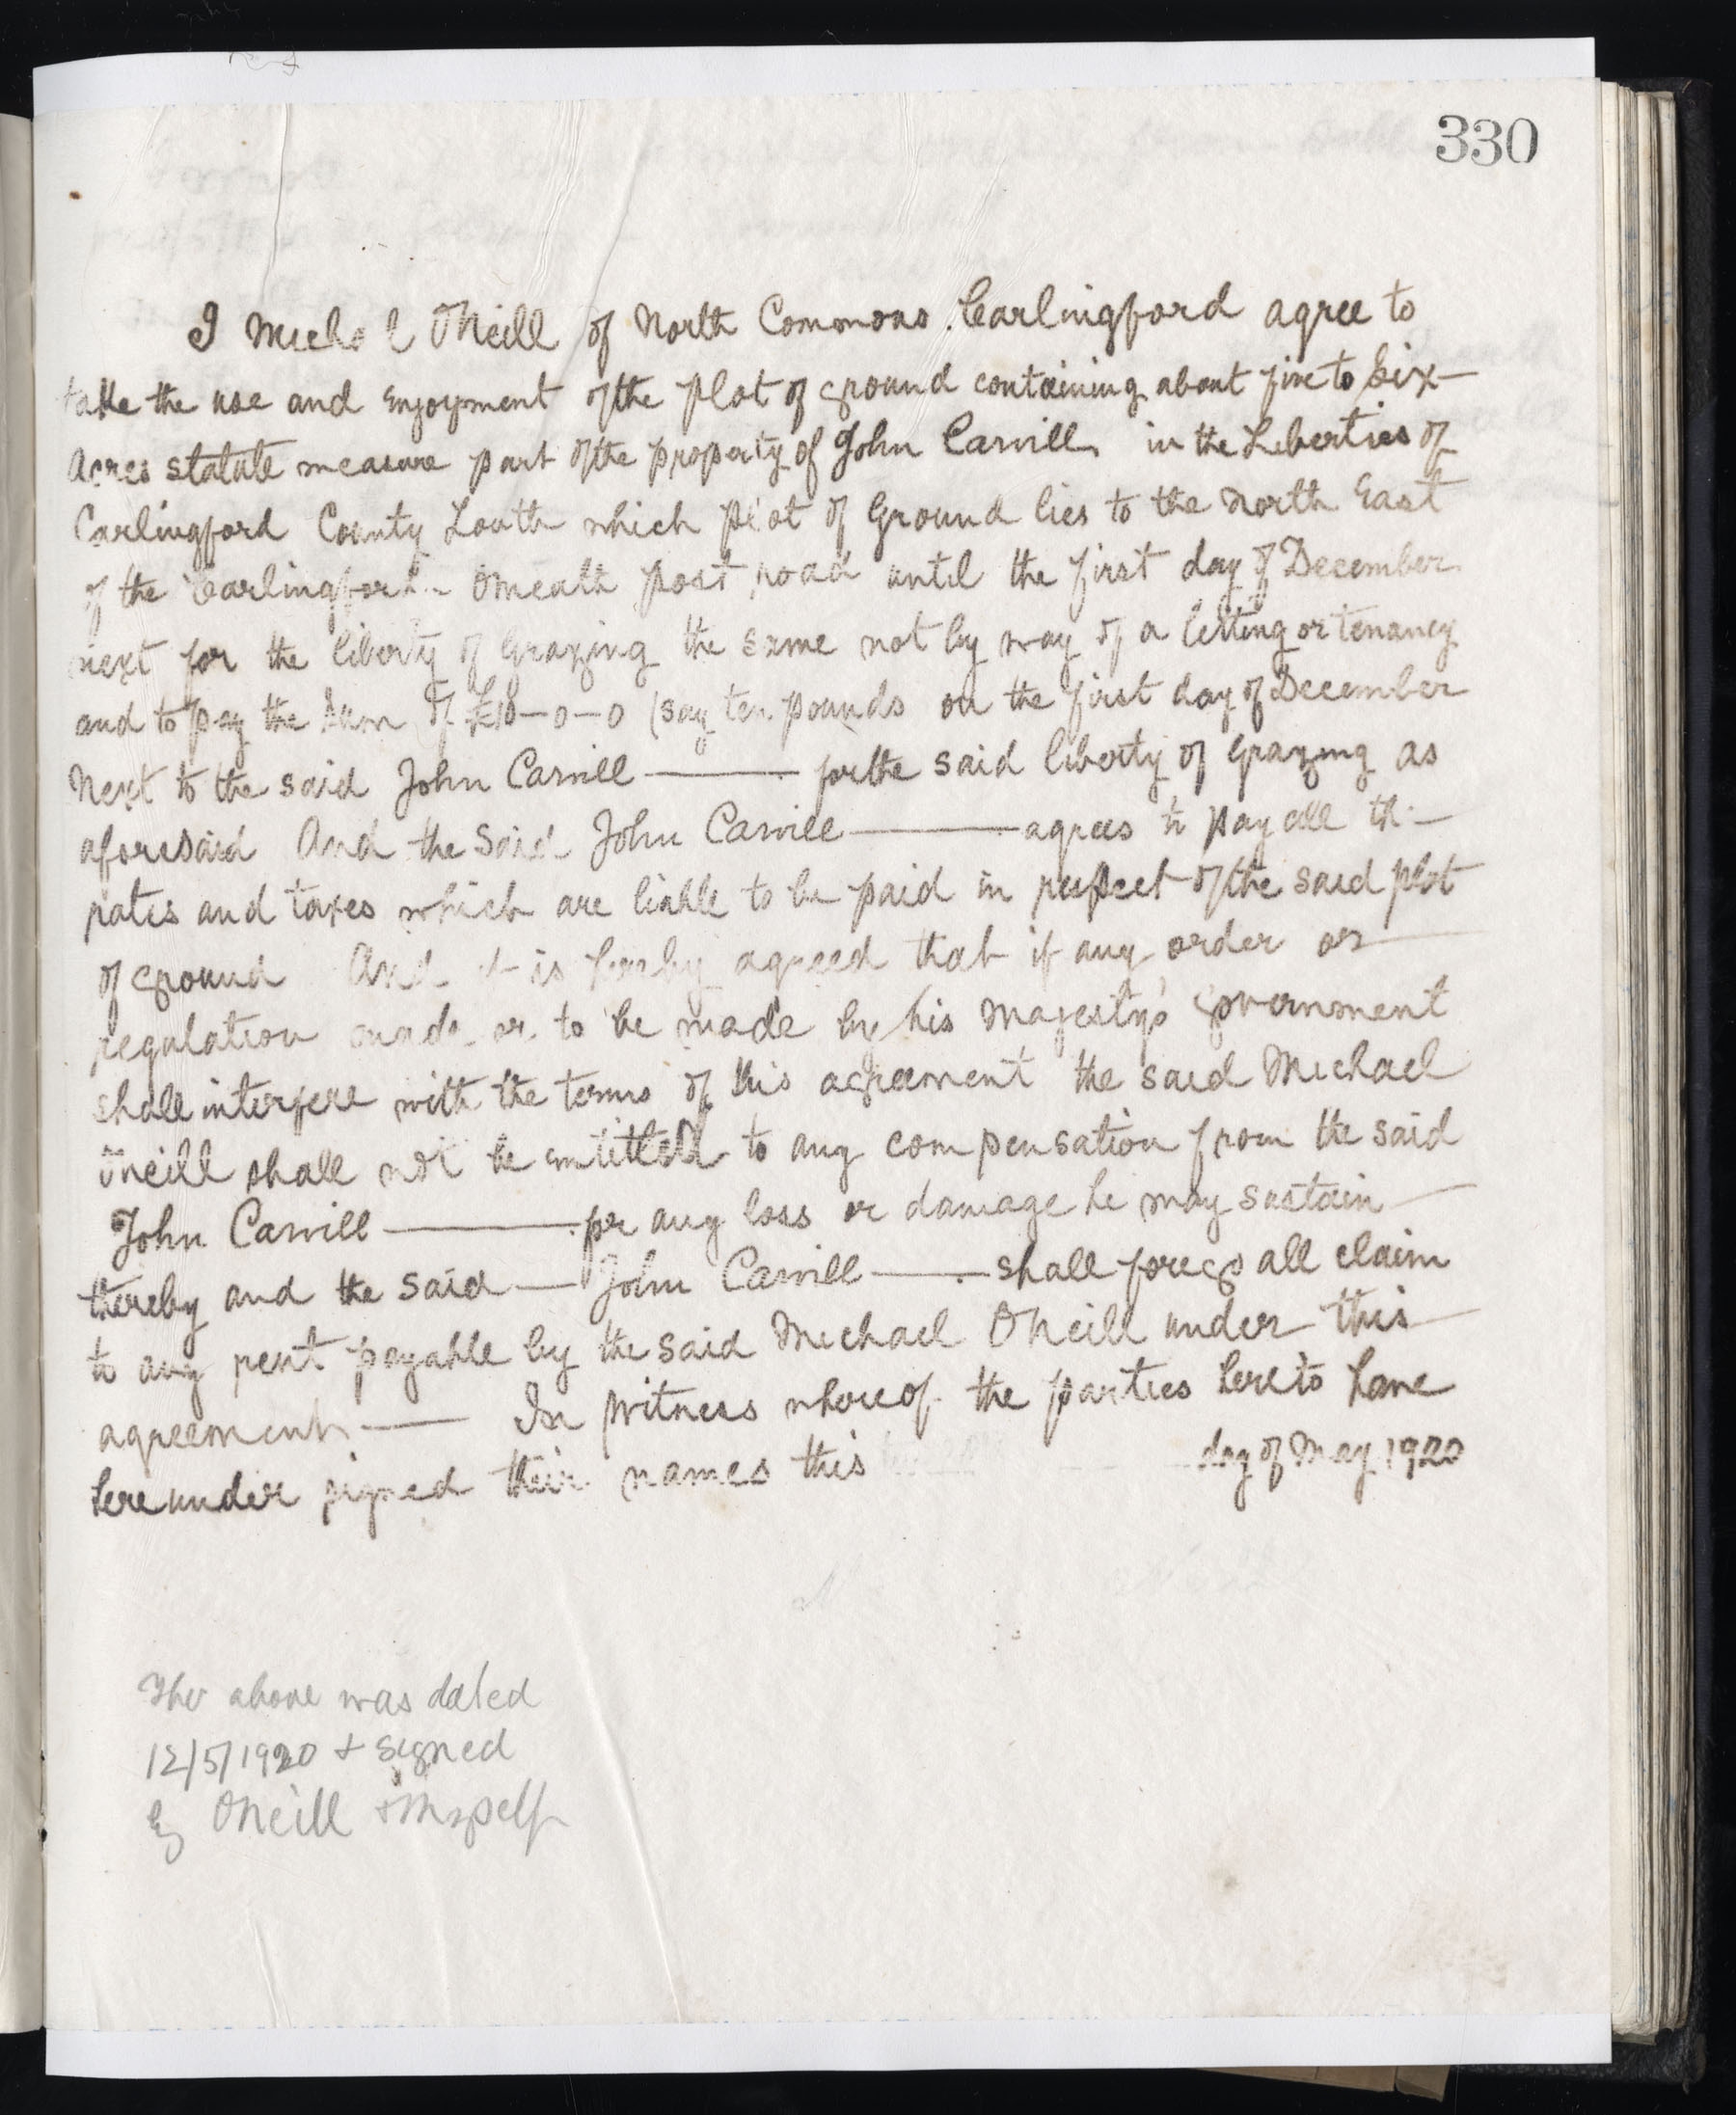 330
I Michael O'Neill of North Commons Carlingford agree to
take the use and Enjoyment of the Plot of ground containing about five to Six
Acres statute measure part of the property of John Carvill in the Liberties of
Carlingford County Louth which plot of Ground lies to the North East
of the Carlingford Omeath post road until the first day of December
next for the liberty of Grazing the same not by way of a letting or tenancy
and to pay the Sum of £10-0-0 (say ten pounds on the first day of December
Next to the said John Carvill for the said liberty of Grazing as
aforesaid And the Said John Carvill agrees to pay all the
rates and taxes which are liable to be paid in respect of the said plot
of ground And it is hereby agreed that if any order or
regulation made or to be made by his Majesty's Government
shall interfere with the terms of this agreement the said Michael
O'Neill shall not be entitled to any compensation from the said
John Carvill for any loss or damage he may sustain
thereby and the said John Carvill shall forego all claim
to any rent payable by the said Michael O'Neill under this
agreement In Witness whereof the parties hereto have
hereunder signed their names this day of May 1920
The above was dated
12/5/1920 + signed
by O'Neill + Myself